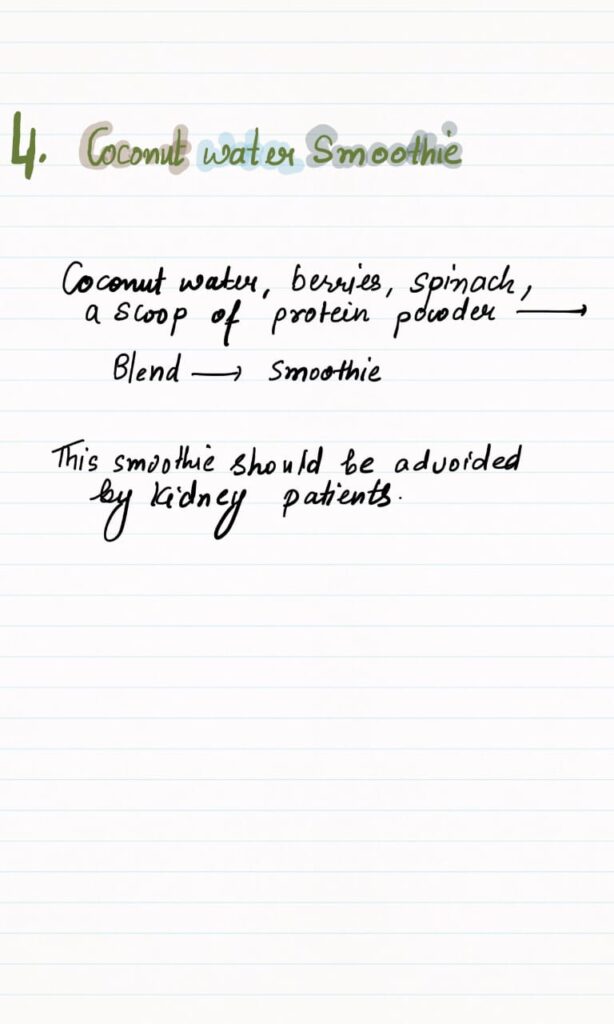 4. Coconut water Smoothie
Coconut water, berries, spinach,
a scoop of protein powder →
Blend → Smoothie
This smoothie should be advoided
by kidney patients.